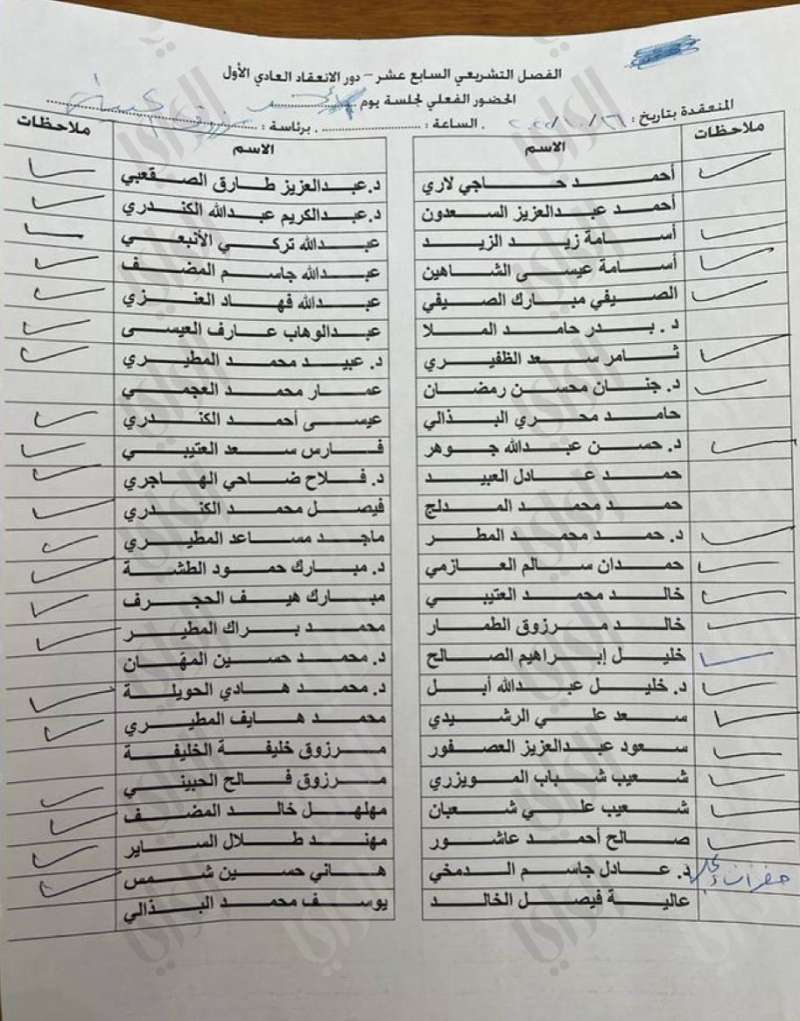 الفصل التشريعي السابع عشر – دور الانعقاد العادي الأول
الحضور الفعلي لجلسة يوم
المنعقدة بتاريخ : ٢٠٢٢/١٠/٢٦ . الساعة : . برئاسة : مرزوق
ملاحظات
الاسم
أحمد حاجي لاري
أحمد عبدالعزيز السعدون
أسامة زيد الزيد
أسامة عيسى الشاهين
الصيفي مبارك الصيفي
د. بدر حامد الملا
ثامر سعد الظفيري
د. جنان محسن رمضان
حامد محري البذالي
د. حسن عبدالله جوهر
حمد عادل العبيد
حمد محمد المدلج
د. حمد محمد المطر
حمدان سالم العازمي
خالد محمد العتيبي
خالد مرزوق الطمار
خليل إبراهيم الصالح
د. خليل عبدالله أبل
سعد علي الرشيدي
سعود عبدالعزيز العصفور
شعيب شباب المويزري
شعيب علي شعبان
صالح أحمد عاشور
د. عادل جاسم الدمخي
عالية فيصل الخالد
الاسم
ملاحظات
د. عبدالعزيز طارق الصقعبي
د. عبدالكريم عبدالله الكندري
عبدالله تركي الأنبعي
عبدالله جاسم المضف
عبدالله فهاد العنزي
عبدالوهاب عارف العيسى
د. عبيد محمد المطيري
عمار محمد العجمي
عيسى أحمد الكندري
فارس سعد العتيبي
د. فلاح ضاحي الهاجري
فيصل محمد الكندري
ماجد مساعد المطيري
د. مبارك حمود الطشة
مبارك هيف الحجرف
محمد براك المطير
د. محمد حسين المهان
د. محمد هادي الحويلة
محمد هايف المطيري
مرزوق خليفة الخليفة
مرزوق فالح الحبيني
مهلهل خالد المضف
مهند طلال الساير
هاني حسين شمس
يوسف محمد البذالي